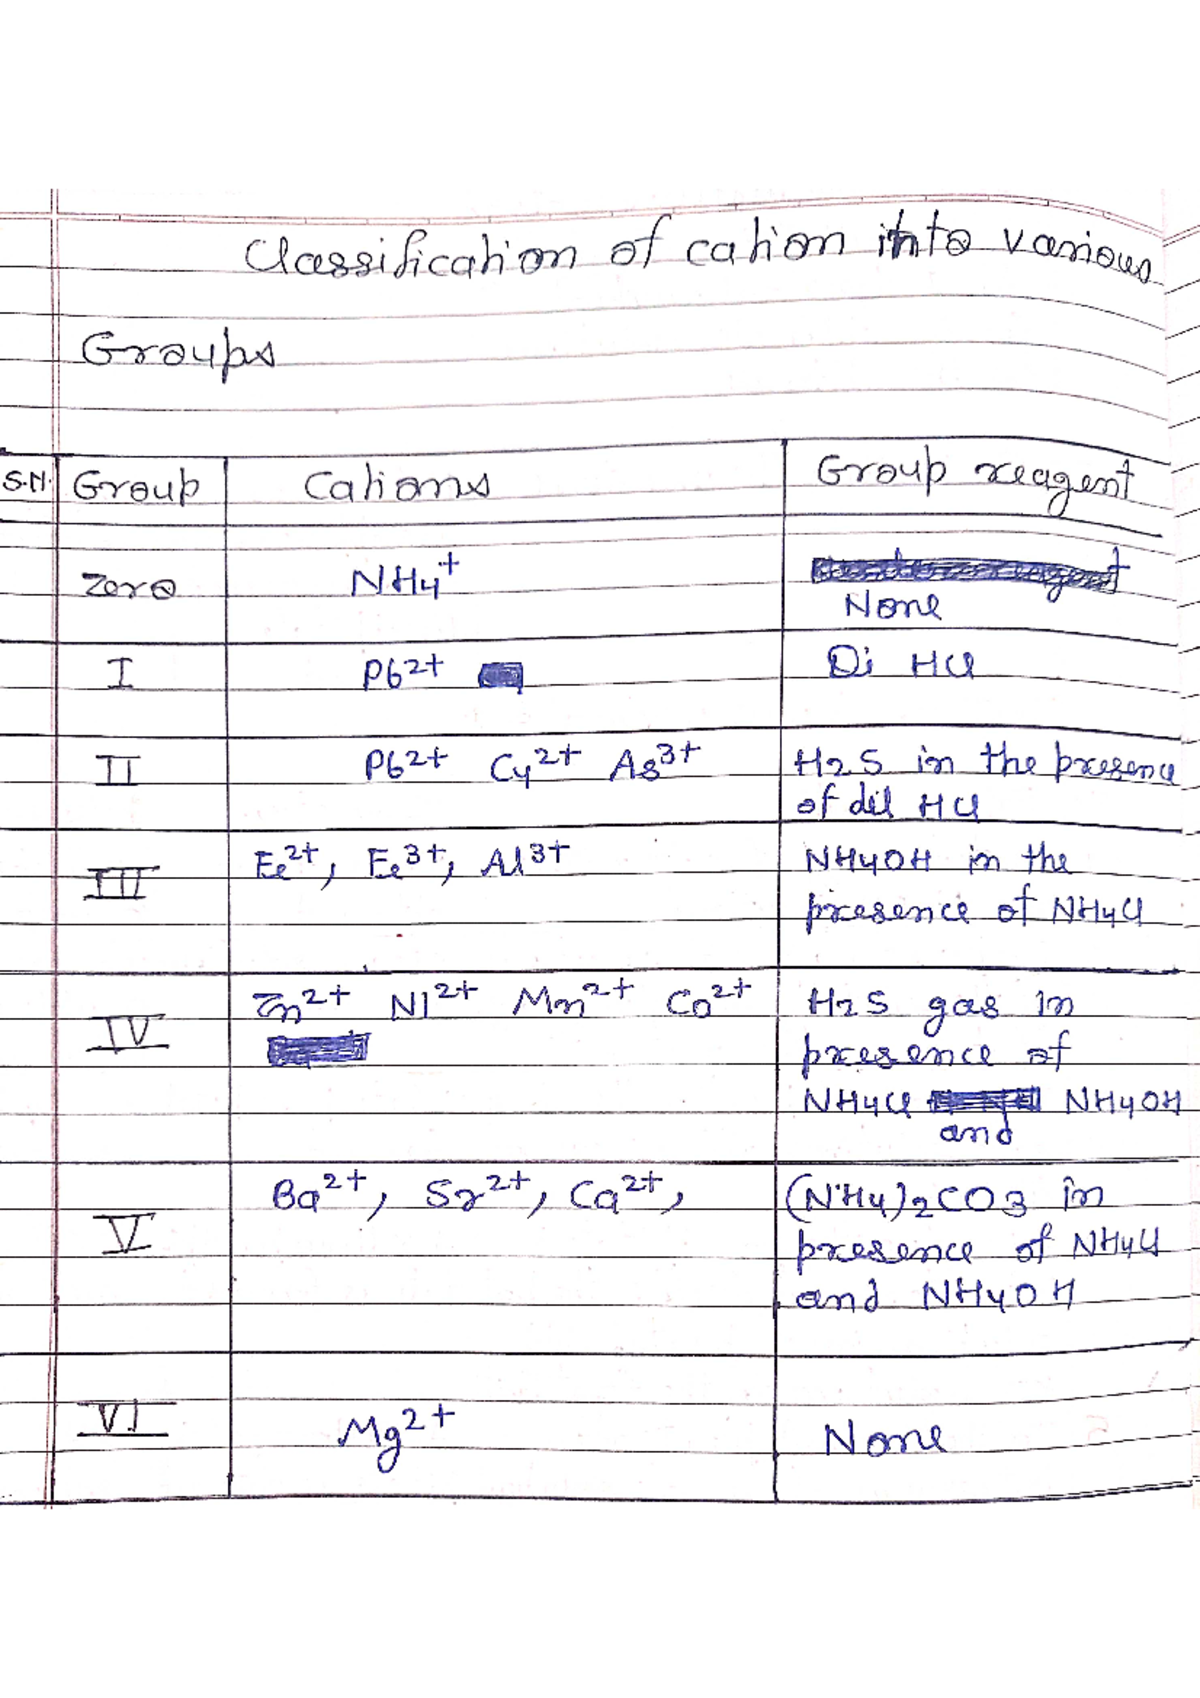 Classification of cation into various
Groups
S.N. Group Cations Group reagent
Zero NH4+ None
I Pb2+ Di HCl
II Pb2+ Cu2+ As3+ H2S in the presence
of dil HCl
III Fe2+, Fe3+, Al3+ NH4OH in the
presence of NH4Cl
IV Zn2+ Ni2+ Mn2+ Co2+ H2S gas in
presence of
NH4Cl and NH4OH
V Ba2+, Sr2+, Ca2+, (NH4)2CO3 in
presence of NH4Cl
and NH4OH
VI Mg2+ None